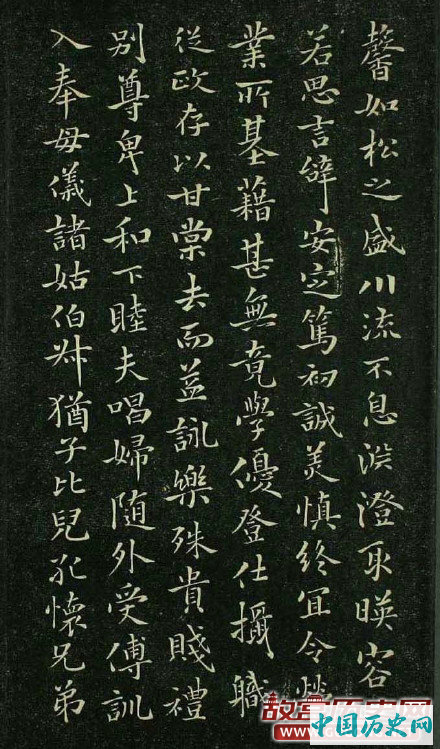 馨如松之盛川流不息淵澄取暎容
若思言辭安定篤初誠美慎終宜令榮
業所基藉甚無竟學優登仕攝職
從政存以甘棠去而益詠樂殊貴賤禮
別尊卑上和下睦夫唱婦隨外受傅訓
入奉母儀諸姑伯叔猶子比兒孔懷兄弟
中国历史网